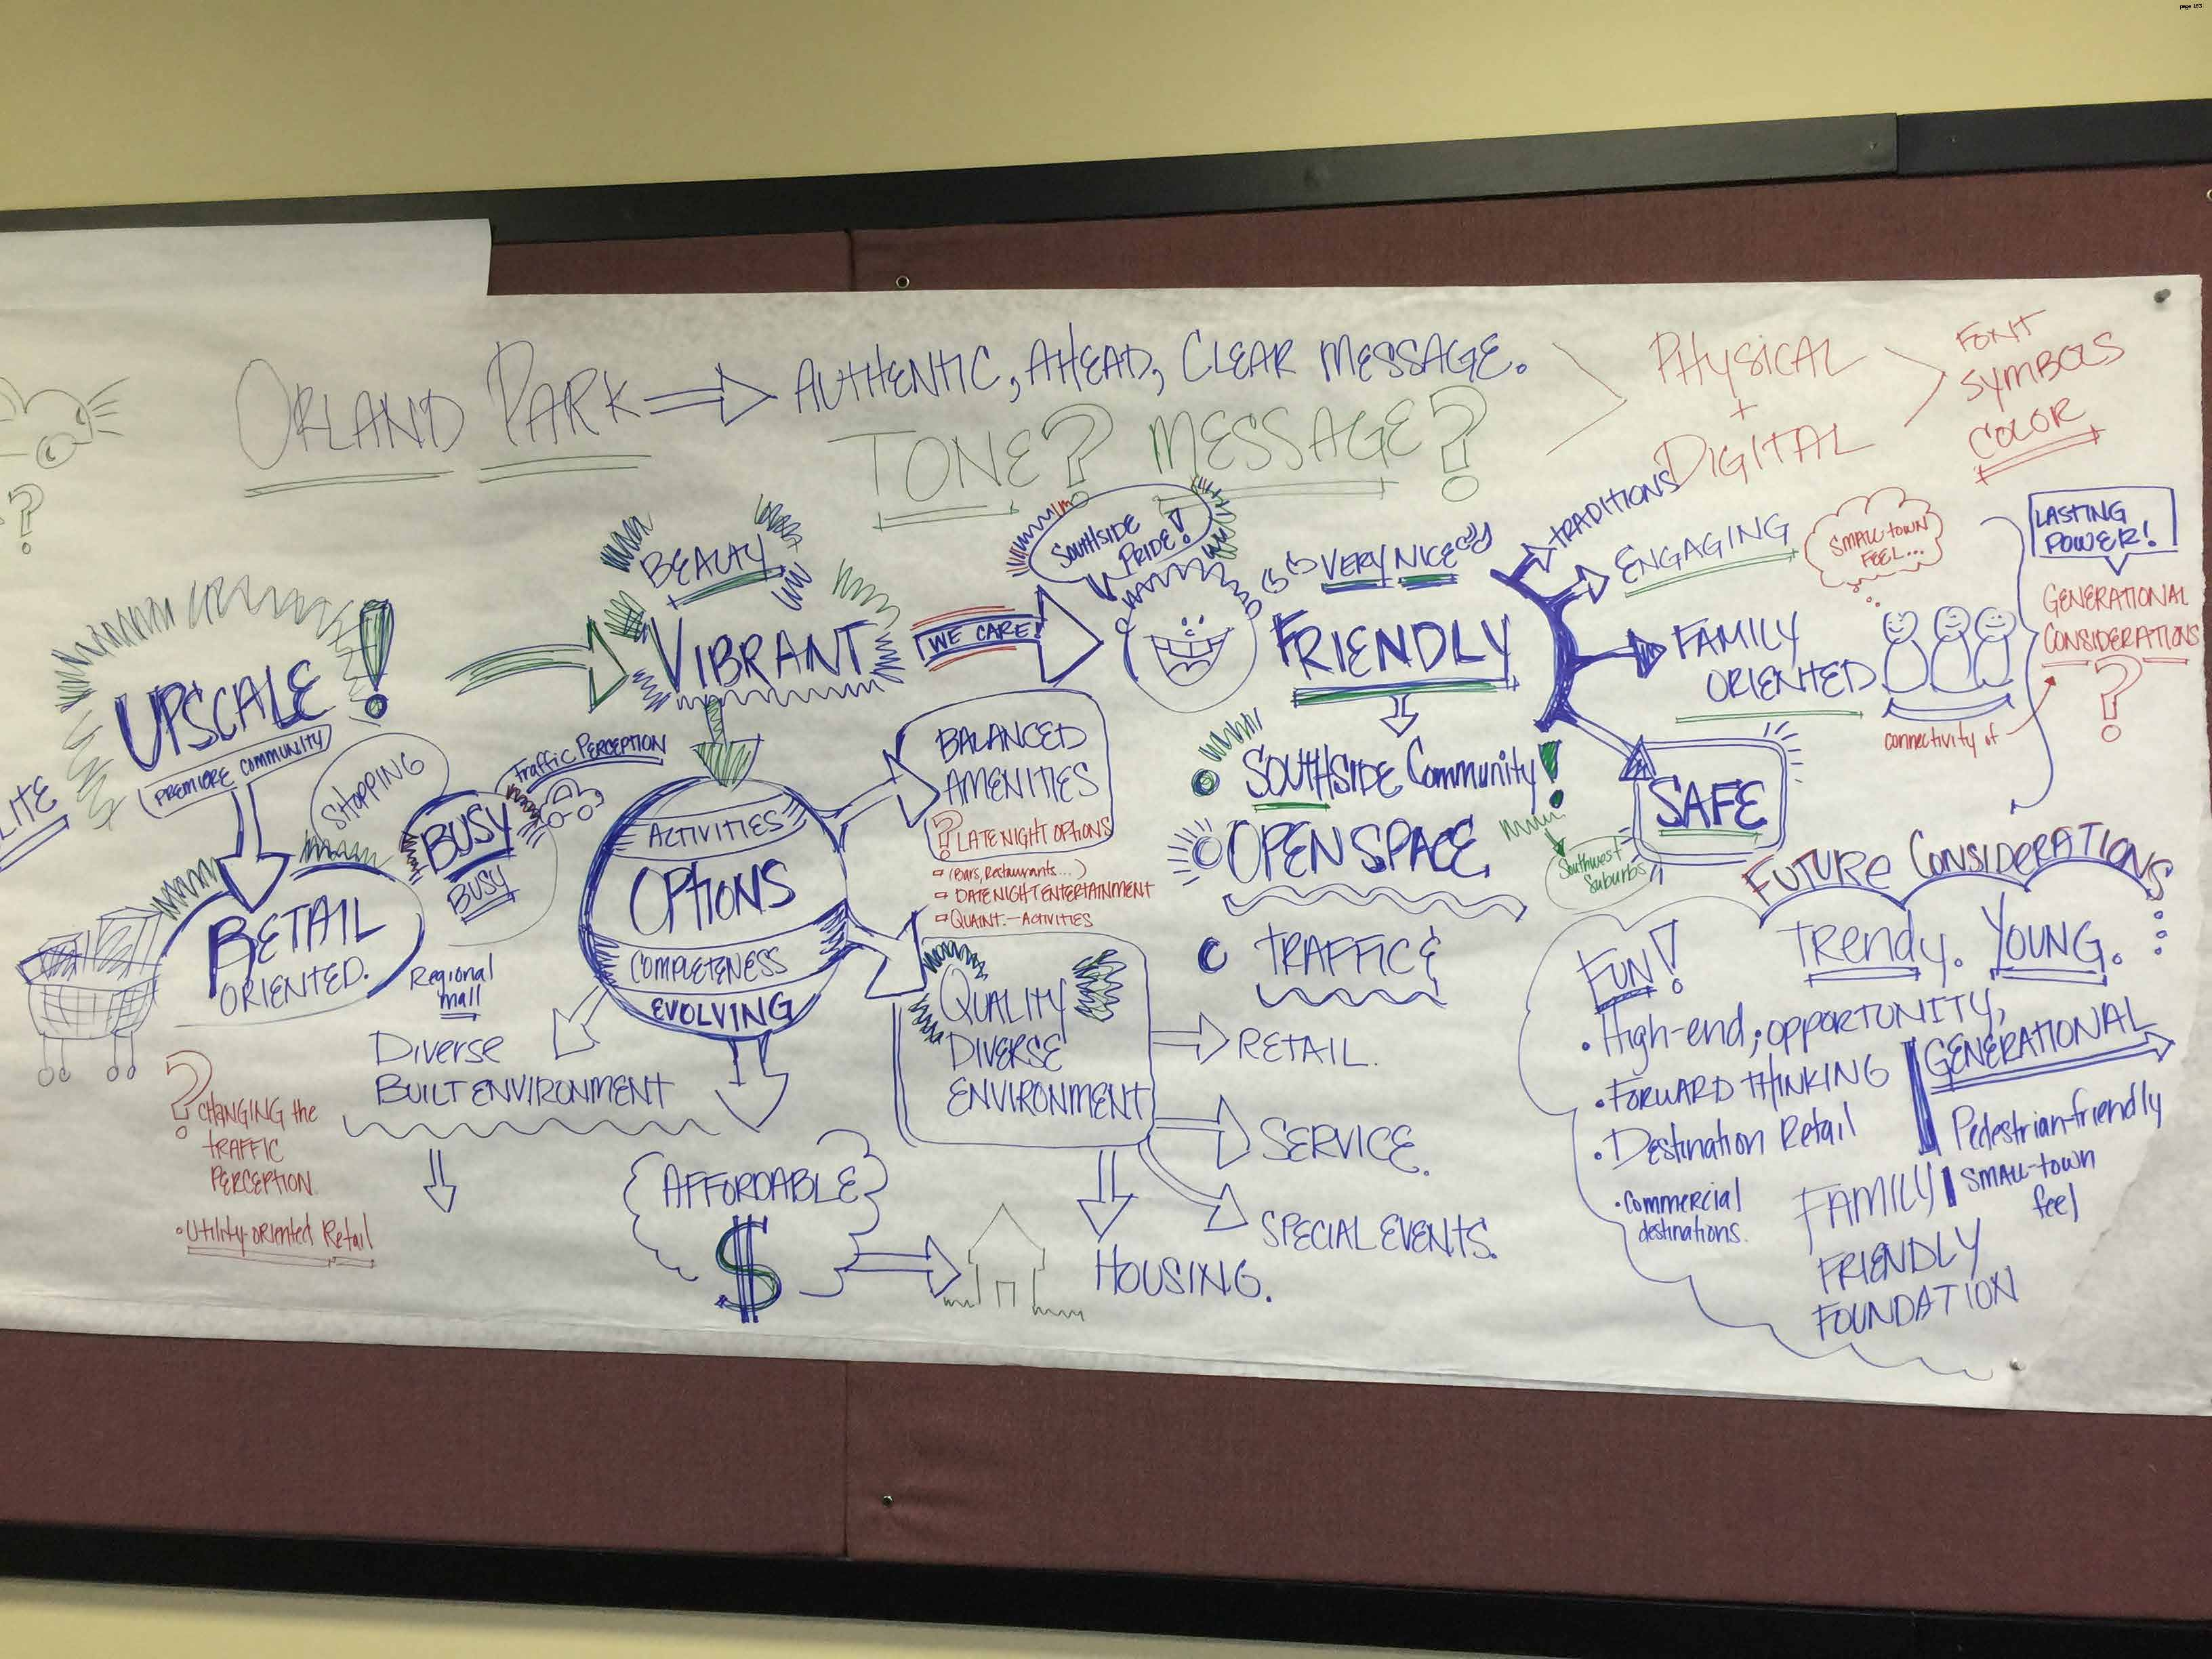 page 163
ORLAND PARK
AUTHENTIC, AHEAD, CLEAR MESSAGE.
TONE? MESSAGE?
PHYSICAL
+
DIGITAL
FONT
SYMBOLS
COLOR
?
LITE
UPSCALE!
PREMIERE COMMUNITY
SHOPPING
RETAIL
ORIENTED.
BUSY
BUSY
Traffic PERCEPTION
Regional
mall
? CHANGING the
TRAFFIC
PERCEPTION
• Utility-oriented Retail
BEAUTY
VIBRANT
WE CARE!
ACTIVITIES
OPTIONS
COMPLETENESS
EVOLVING
Diverse
BUILT ENVIRONMENT
AFFORDABLE
$
BALANCED
AMENITIES
? LATE NIGHT OPTIONS
(Bars, Restaurants...)
DATE NIGHT ENTERTAINMENT
QUAINT - ACTIVITIES
QUALITY
DIVERSE
ENVIRONMENT
RETAIL.
SERVICE.
SPECIAL EVENTS.
HOUSING.
SOUTHSIDE
PRIDE!
VERY NICE
FRIENDLY
SOUTHSIDE Community!
Southwest
Suburbs
OPEN SPACE
TRAFFIC &
TRADITIONS
ENGAGING
FAMILY
ORIENTED
SAFE
SMALL-TOWN
FEEL...
connectivity of
LASTING
POWER!
GENERATIONAL
CONSIDERATIONS
?
FUTURE CONSIDERATIONS
FUN! TRENDY. YOUNG.
• High-end; OPPORTUNITY,
• FORWARD THINKING
• Destination Retail
• Commercial
destinations.
GENERATIONAL
Pedestrian-friendly
SMALL-TOWN
feel
FAMILY
FRIENDLY
FOUNDATION